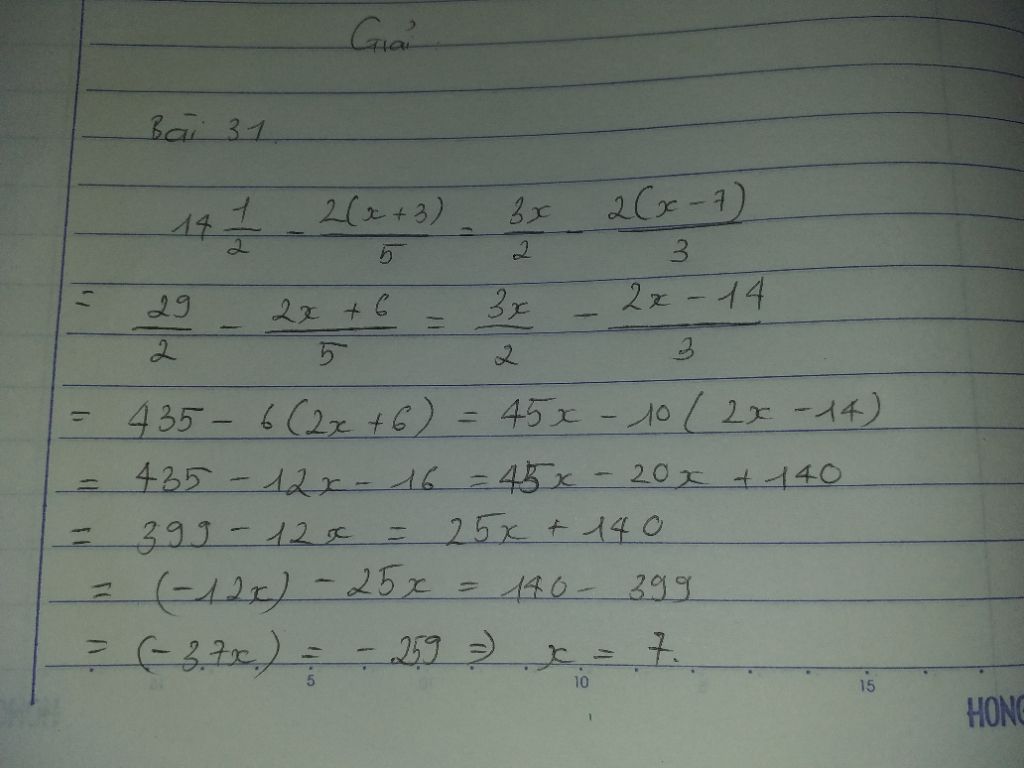 Giải
Bài 31
14 1/2 - 2(x+3)/5 = 3x/2 - 2(x-7)/3
= 29/2 - (2x+6)/5 = 3x/2 - (2x-14)/3
= 435 - 6(2x+6) = 45x - 10(2x-14)
= 435 - 12x - 16 = 45x - 20x + 140
= 399 - 12x = 25x + 140
= (-12x) - 25x = 140 - 399
= (-37x) = -259 => x = 7.
5 10 15
HONG